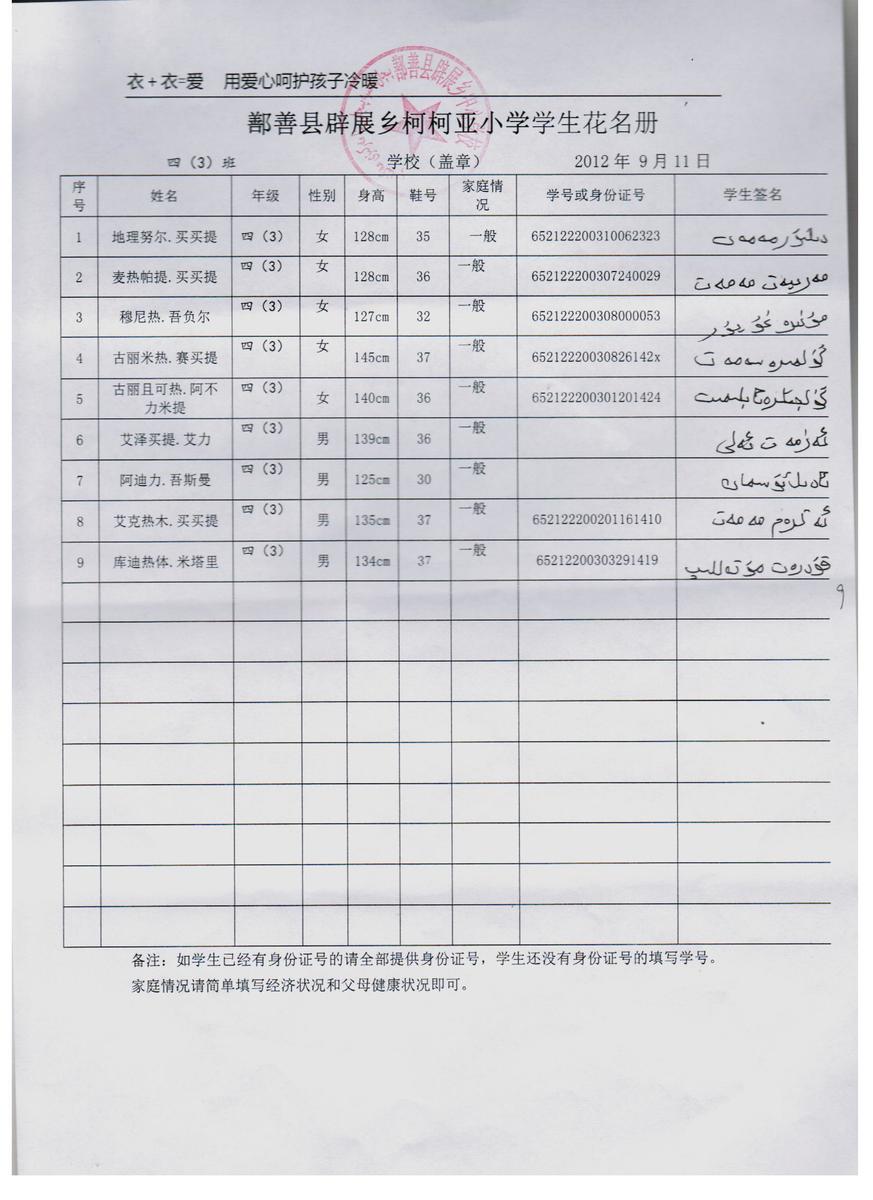 衣+衣=爱 用爱心呵护孩子冷暖
鄯善县辟展乡柯柯亚小学学生花名册
四（3）班 学校（盖章） 2012年9月11日
序号 姓名 年级 性别 身高 鞋号 家庭情况 学号或身份证号 学生签名
1 地理努尔.买买提 四（3） 女 128cm 35 一般 652122200310062323
2 麦热帕提.买买提 四（3） 女 128cm 36 一般 652122200307240029
3 穆尼热.吾负尔 四（3） 女 127cm 32 一般 652122200308000053
4 古丽米热.赛买提 四（3） 女 145cm 37 一般 65212220030826142x
5 古丽且可热.阿不力米提 四（3） 女 140cm 36 一般 652122200301201424
6 艾泽买提.艾力 四（3） 男 139cm 36 一般
7 阿迪力.吾斯曼 四（3） 男 125cm 30 一般
8 艾克热木.买买提 四（3） 男 135cm 37 一般 652122200201161410
9 库迪热体.米塔里 四（3） 男 134cm 37 一般 65212200303291419
9
备注：如学生已经有身份证号的请全部提供身份证号，学生还没有身份证号的填写学号。
家庭情况请简单填写经济状况和父母健康状况即可。